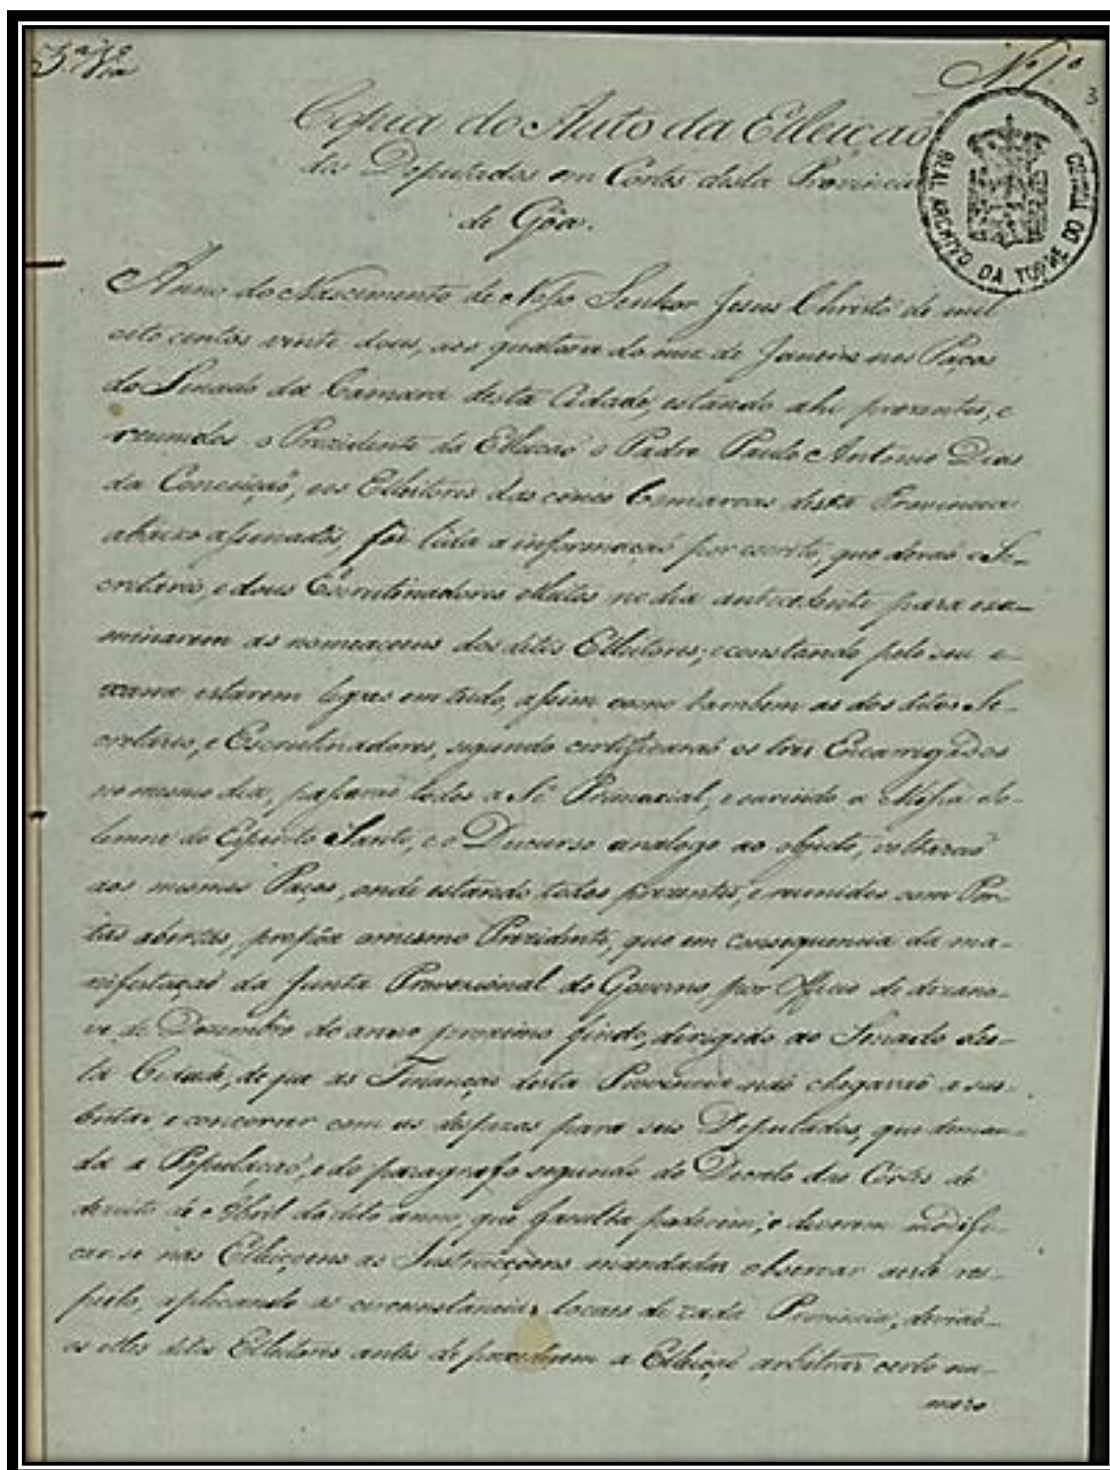 3.ª Via
N.º 1.º
3
Copia do Auto da Elleiçaõ
dos Deputados em Cortes desta Provincia
de Gôa.
REAL ARCHIVO DA TORRE DO TOMBO
Anno do Nascimento de Nosso Senhor Jesus Christo de mil
oito centos vinte dous, aos quatorze do mez de Janeiro nos Paços
do Senado da Camara desta Cidade, estando ahi prezentes, e
reunidos o Prezidente da Elleiçaõ o Padre Paulo Antonio Dias
da Conceiçaõ, e os Elleitores das cinco Comarcas desta Provincia
abaixo assinados, foi lida a informaçaõ por escrito, que deraõ o Se-
cretario, e dous Escrutinadores elleitos no dia antecedente para exa-
minarem as nomeaçoens dos ditos Elleitores; e constando pelo seu e-
xame estarem legaes em tudo, assim como tambem as dos ditos Se-
cretario, e Escrutinadores, segundo certificaraõ os tres Encarregados
no mesmo dia, passaraõ todos a Sé Primacial, e ouvindo a Missa so-
lemne do Espirito Santo, e o Discurso analogo ao objecto, voltaraõ
aos mesmos Paços, onde estando todos prezentes, e reunidos com Por-
tas abertas, propôz o mesmo Prezidente, que em consequencia da ma-
nifestaçaõ da Junta Provizional do Governo por Officio de dezano-
ve de Dezembro do anno proximo findo, dirigido ao Senado des-
ta Cidade, de que as Finanças desta Provincia naõ chegavaõ a sus-
tentar e concorrer com as despezas para seis Deputados, que deman-
da a Populaçaõ, e do paragrafo segundo do Decreto das Cortes de
dezoito de Abril do dito anno, que faculta poderem, e deverem modifi-
car-se nas Elleiçoens as Instrucçoens mandadas observar neste res-
peito, aplicando as circunstancias locaes de cada Provincia, deviaõ
os ditos Elleitores antes de procederem a Elleiçaõ arbitrar certo nu-
mero